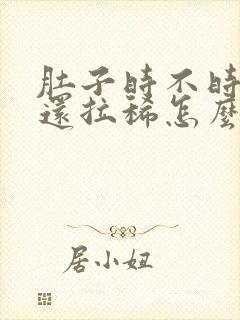 肚子時不時
還拉稀怎麼
居小妞